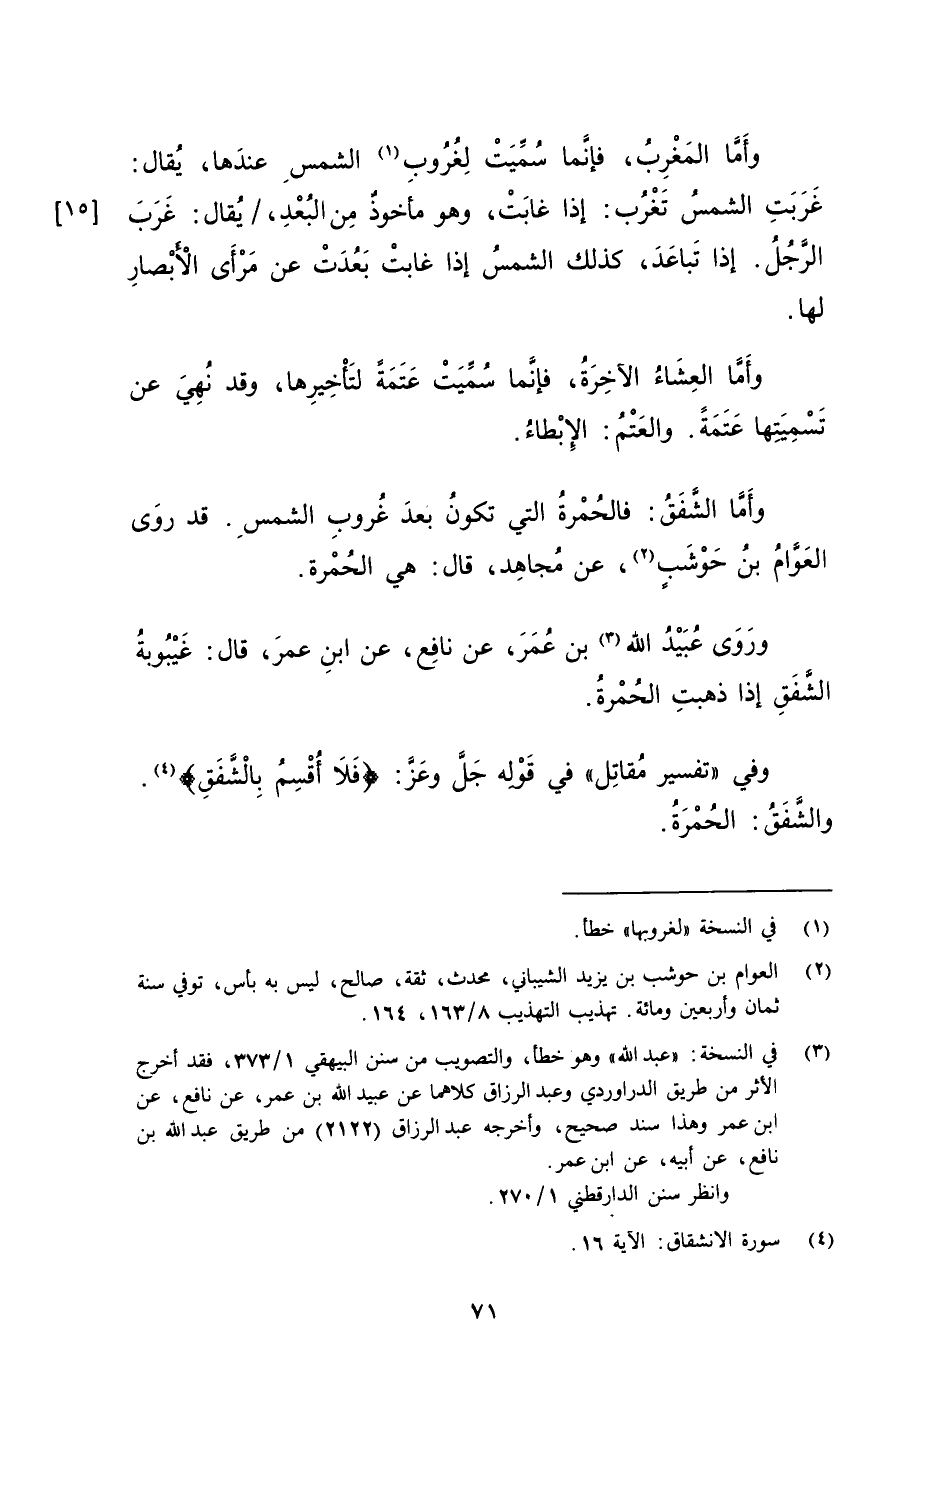 وأَمَّا المَغْرِبُ، فإنَّما سُمِّيَتْ لِغُرُوبِ(١) الشمسِ عندَها، يُقال:
غَرَبَتِ الشمسُ تَغْرُب: إذا غابَتْ، وهو مأخوذٌ مِن البُعْدِ،/ يُقال: غَرَبَ [١٥]
الرَّجُلُ. إذا تَباعَدَ، كذلك الشمسُ إذا غابتْ بَعُدَتْ عن مَرْأَى الْأَبْصارِ
لها.
وأَمَّا العِشَاءُ الآخِرَةُ، فإنَّما سُمِّيَتْ عَتَمَةً لتَأْخِيرِها، وقد نُهِيَ عن
تَسْمِيَتِها عَتَمَةً. والعَتْمُ: الإِبْطاءُ.
وأَمَّا الشَّفَقُ: فالحُمْرةُ التي تكونُ بعدَ غُروبِ الشمسِ. قد روَى
العَوَّامُ بنُ حَوْشَبٍ(٢)، عن مُجاهِد، قال: هي الحُمْرة.
ورَوَى عُبَيْدُ الله(٣) بن عُمَرَ، عن نافِع، عن ابنِ عمرَ، قال: غَيْبُوبةُ
الشَّفَقِ إذا ذهبتِ الحُمْرةُ.
وفي «تفسير مُقاتِل» في قَوْلِه جَلَّ وعَزَّ: ﴿فَلَا أُقْسِمُ بِالْشَّفَقِ﴾(٤).
والشَّفَقُ: الحُمْرَةُ.
(١) في النسخة «لغروبها» خطأ.
(٢) العوام بن حوشب بن يزيد الشيباني، محدث، ثقة، صالح، ليس به بأس، توفي سنة
ثمان وأربعين ومائة. تهذيب التهذيب ١٦٣/٨، ١٦٤.
(٣) في النسخة: «عبد الله» وهو خطأ، والتصويب من سنن البيهقي ٣٧٣/١، فقد أخرج
الأثر من طريق الدراوردي وعبد الرزاق كلاهما عن عبيد الله بن عمر، عن نافع، عن
ابن عمر وهذا سند صحيح، وأخرجه عبد الرزاق (٢١٢٢) من طريق عبد الله بن
نافع، عن أبيه، عن ابن عمر.
وانظر سنن الدارقطني ٢٧٠/١.
(٤) سورة الانشقاق: الآية ١٦.
٧١